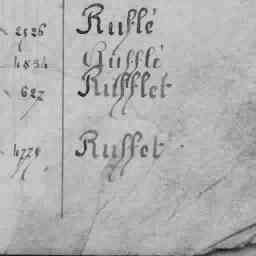 2526 Rufflé
4834 Gufflé
627 Rufflet
4778 Ruffet